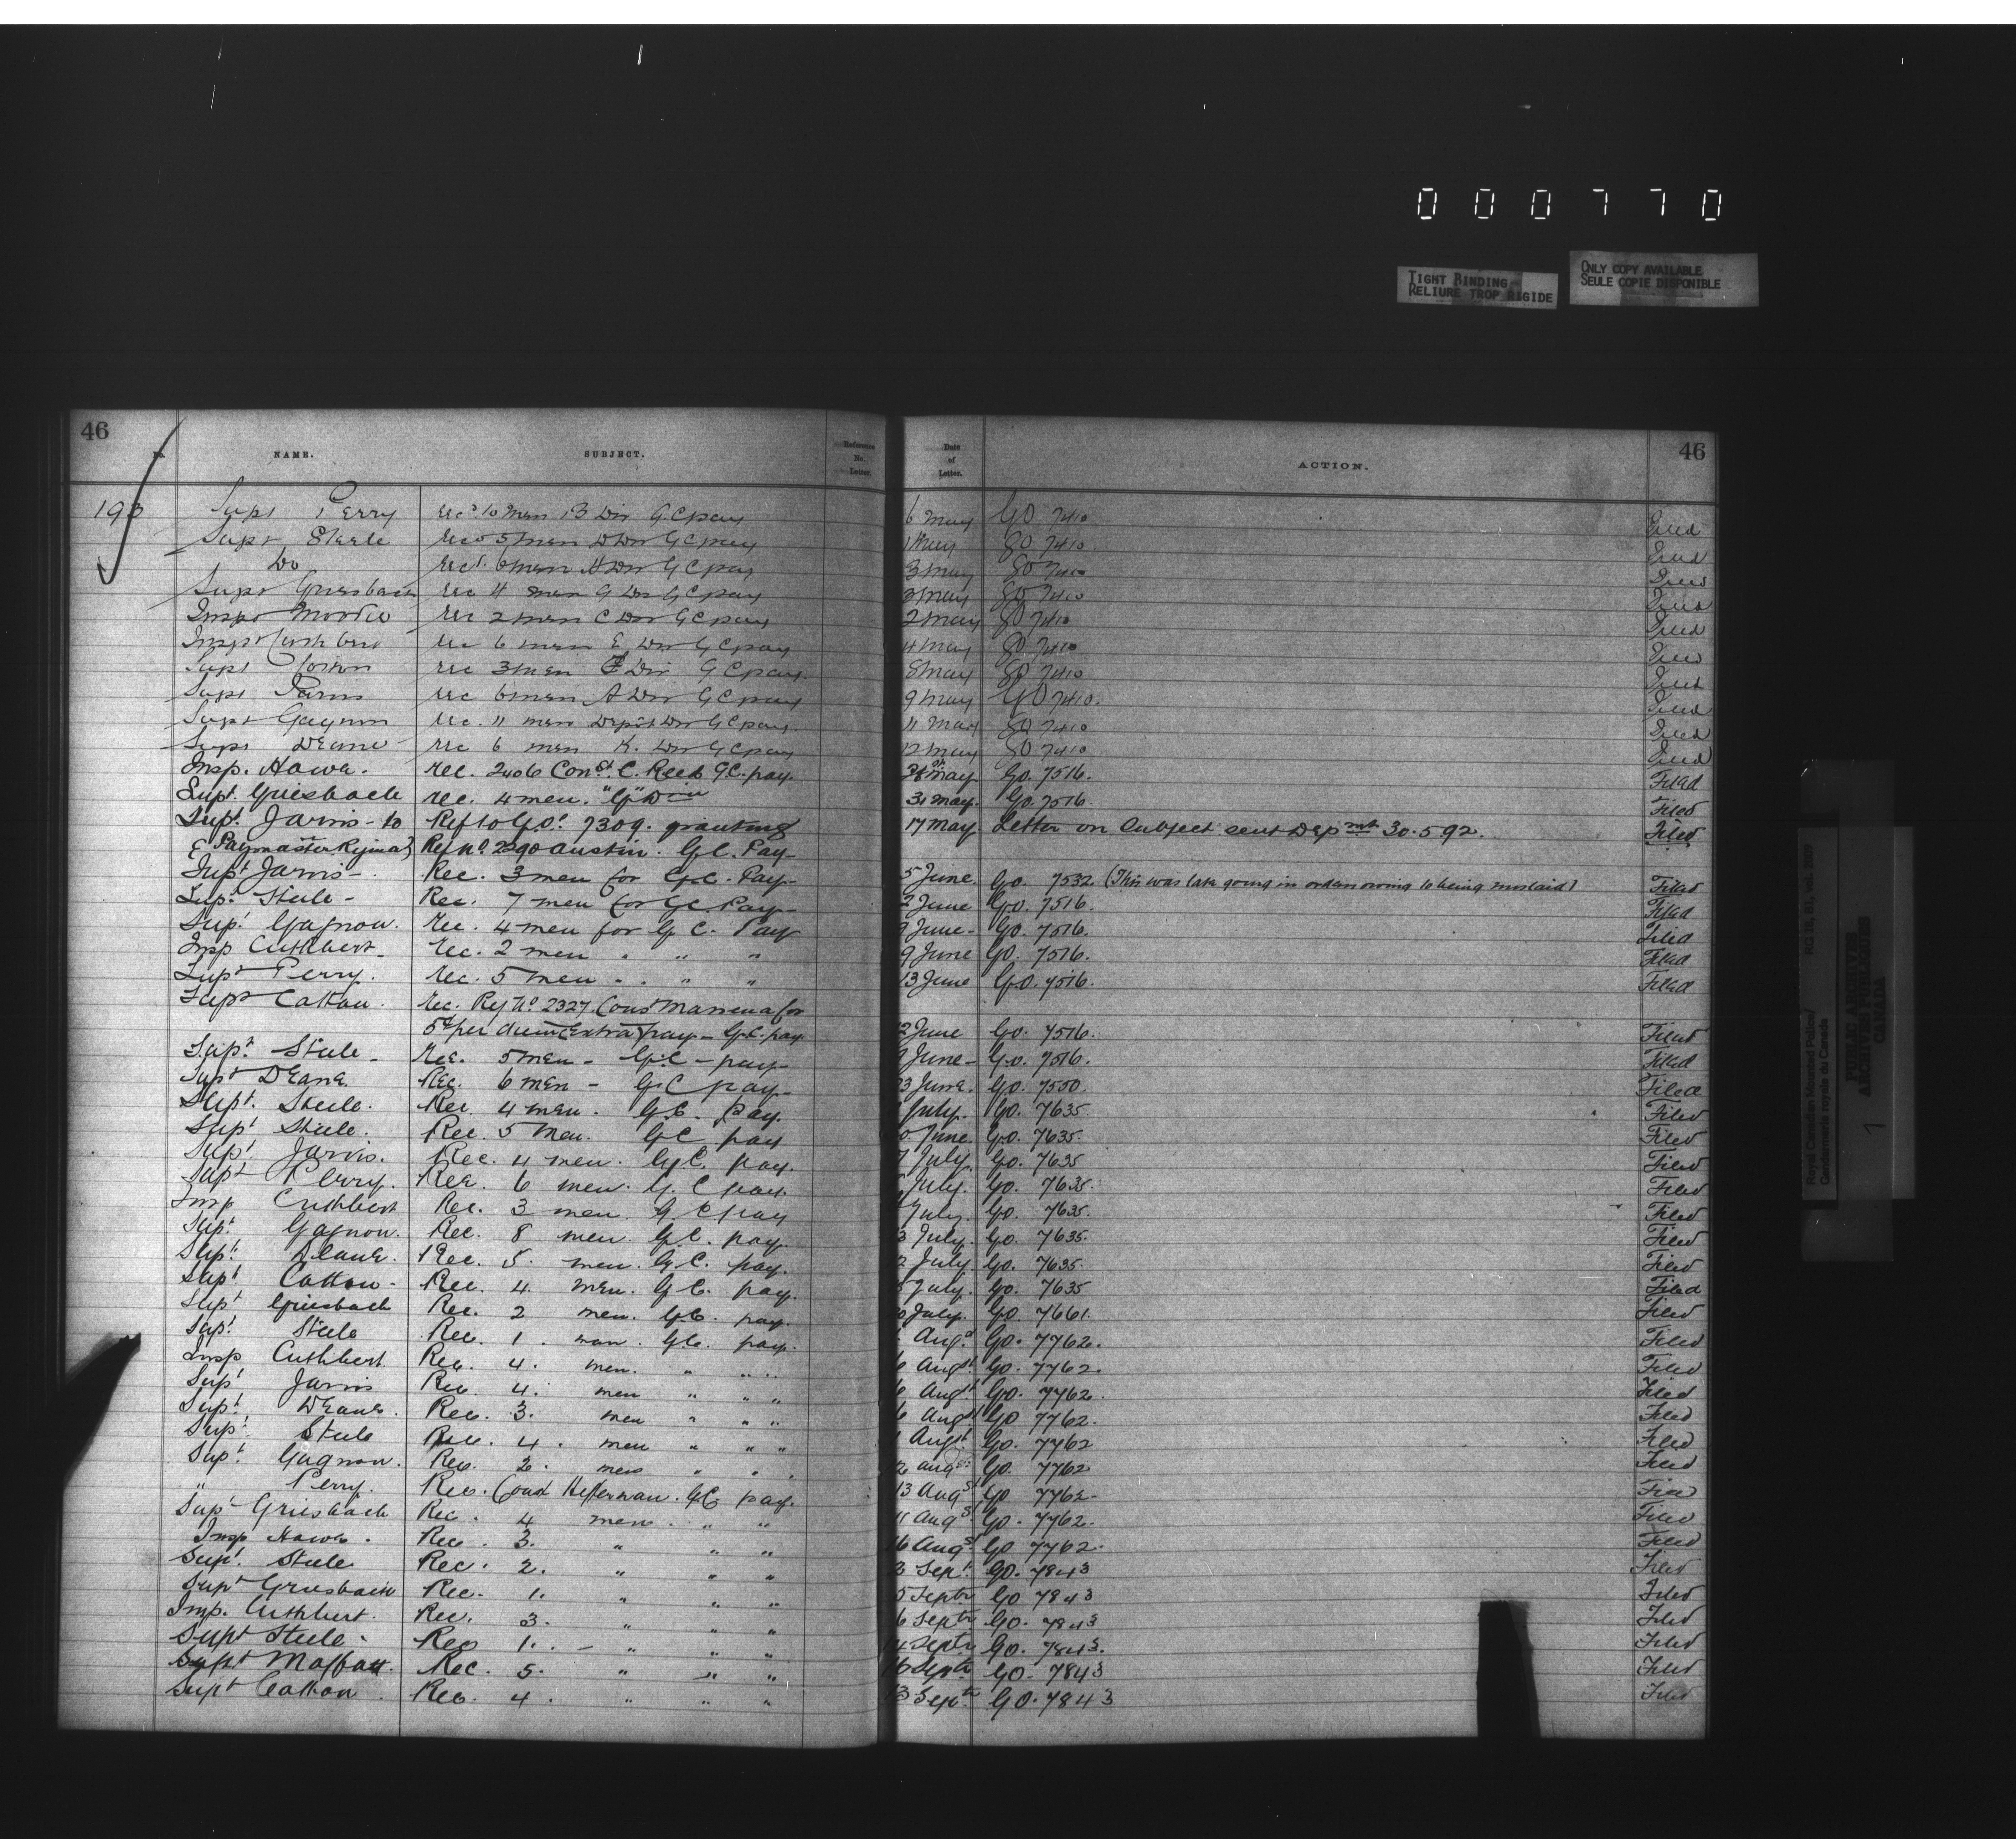 000770
TIGHT BINDING
RELIURE TROP RIGIDE
ONLY COPY AVAILABLE
SEULE COPIE DISPONIBLE
46
46
No. NAME. SUBJECT. Reference No. Letter. Date of Letter. ACTION.
193 Supt Perry recs 10 men B Div G.C pay 6 May GO 7410 Filed
Supt Steele recs 5 men D Div G C pay 1 May GO 7410 Filed
Do recs 6 men H Div G C pay 3 May GO 7410 Filed
Supt Griesbach rec 4 men G Div G C pay 3 May GO 7410 Filed
Inspr Moodie rec 2 men C Div G C pay 2 May GO 7410 Filed
Inspr Cuthbert rec 6 men E Div G C pay 4 May GO 7410 Filed
Supt Cotton rec 3 men F Div G C pay. 8 May GO 7410 Filed
Supt Jarvis rec 6 men A Div G C pay 9 May GO 7410. Filed
Supt Gagnon rec. 11 men Depôt Div G C pay. 11 May GO 7410 Filed
Supt Deane rec 6 men K. Div G C pay 12 May GO 7410 Filed
Insp. Howe. rec. 2406 Const. C. Reed G.C. pay. 31st May Go. 7516. Filed
Supt. Griesbach rec. 4 men. "G" Divn 31 May. Go. 7516. Filed
Supt. Jarvis - to Ref to G.O. 7309. granting 17 May Letter on Subject sent Depmt 30.5 92. Filed
Paymaster Regina Reg No. 2290 Austin. G.C. Pay-
Supt Jarvis - Rec. 3 men for G.C. Pay- 5 June. Go. 7532 (This was late going in orders owing to being mislaid) Filed
Supt. Steele - Rec. 7 men for G.C. Pay- 2 June Go. 7516. Filed
Supt. Gagnon. rec. 4 men for G C. Pay 9 June- Go. 7516. Filed
Insp Cuthbert- rec. 2 men " " " 9 June Go. 7516. Filed
Supt Perry. rec. 5 men " " " 13 June Go. 7516. Filed
Supt Cotton. rec. Reg No. 2327. Const for
5¢ per diem (Extra) pay - G.C. pay 2 June Go. 7516. Filed
Supt. Steele - rec. 5 men - G.C - pay- 9 June- Go. 7516. Filed
Supt Deane. Rec. 6 men - G C pay- 3 June. Go. 7550. Filed
Supt. Steele. Rec. 4 men. G.C. pay. July. Go. 7635. Filed
Supt. Steele. Rec. 5 Men. G C pay June. Go. 7635. Filed
Supt. Jarvis. Rec. 4 men. G.C. pay. 7 July. Go. 7635 Filed
Supt Perry. Rec. 6 men. G. C pay. July. Go. 7635. Filed
Insp Cuthbert Rec. 3 men. G. C pay July. Go. 7635. Filed
Supt. Gagnon. Rec. 8 men. G.C. pay. 3 July. Go. 7635. Filed
Supt. Deane. Rec. 5. men. G.C. pay. 2 July. Go. 7635. Filed
Supt. Cotton - Rec. 4. men. G.C. pay. 5 July. Go. 7635 Filed
Supt Griesbach Rec. 2 men. G.C. pay. July. Go. 7661. Filed
Supt. Steele Rec. 1. man. G.C. pay. Augt Go. 7762. Filed
Insp Cuthbert Rec. 4. men. " " " 6 Augt Go. 7762. Filed
Supt Jarvis Rec. 4. men " " " 6 Augt Go. 7762. Filed
Supt. Deane. Rec. 3. men " " " 6 Augt Go 7762. Filed
Supt. Steele Rec. 4. men " " " 1 Augt Go. 7762 Filed
Supt. Gagnon. Rec. 2. men " " " 12 Augst Go. 7762 Filed
" Perry. Rec. Const Heffernan. G.C. pay. 13 Augst Go 7762- Filed
Supt Griesbach Rec. 4 men. " " 11 Augst Go. 7762. Filed
Insp Howe. Rec. 3. " " " 16 Augst Go 7762. Filed
Supt. Steele. Rec. 2. " " " 3 Sept. Go. 7843 Filed
Supt Griesbach Rec. 1. " " " 5 Septr Go 7843 Filed
Insp. Cuthbert. Rec. 3. " " " 6 Septr Go. 7843 Filed
Supt Steele - Rec 1. - " " 14 Septr Go. 7843. Filed
Supt Moffatt. Rec. 5. " " " 16 Septr Go. 7843 Filed
Supt Cotton. Rec. 4. " " " 13 Septr GO. 7843 Filed
Royal Canadian Mounted Police/
Gendarmerie royale du Canada
RG 18, B1, vol. 2009
PUBLIC ARCHIVES
ARCHIVES PUBLIQUES
CANADA